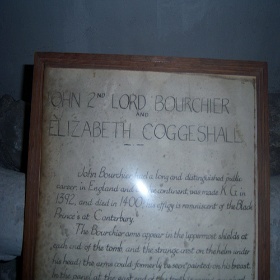 JOHN 2ND LORD BOURCHIER
AND
ELIZABETH COGGESHALL
John Bourchier had a long and distinguished public
career in England and continent, was made K.G. in
1392, and died in 1400. his effigy is reminiscent of the Black
Prince's at Canterbury.
The Bourchier arms appear on the uppermost shields at
each end of the tomb, and the strange crest on the helm under
his head; the same could formerly be seen painted on his breast.